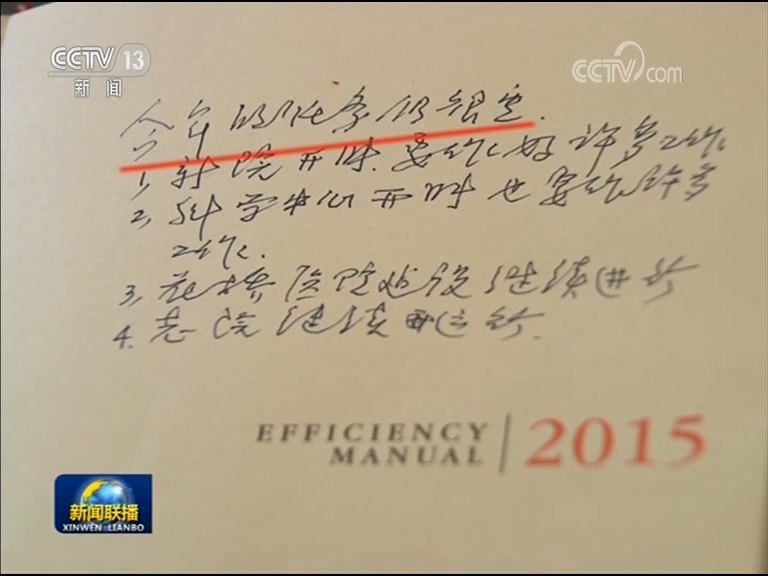 CCTV 13
新闻
CCTV.com
今年的任务仍很重.
1, 新院开时.要作好许多工作
2, 科学中心开时也要作许多
工作.
3, 医院建设继续进行
4. 老院继续运行.
EFFICIENCY
MANUAL
2015
新闻联播
XINWEN LIANBO